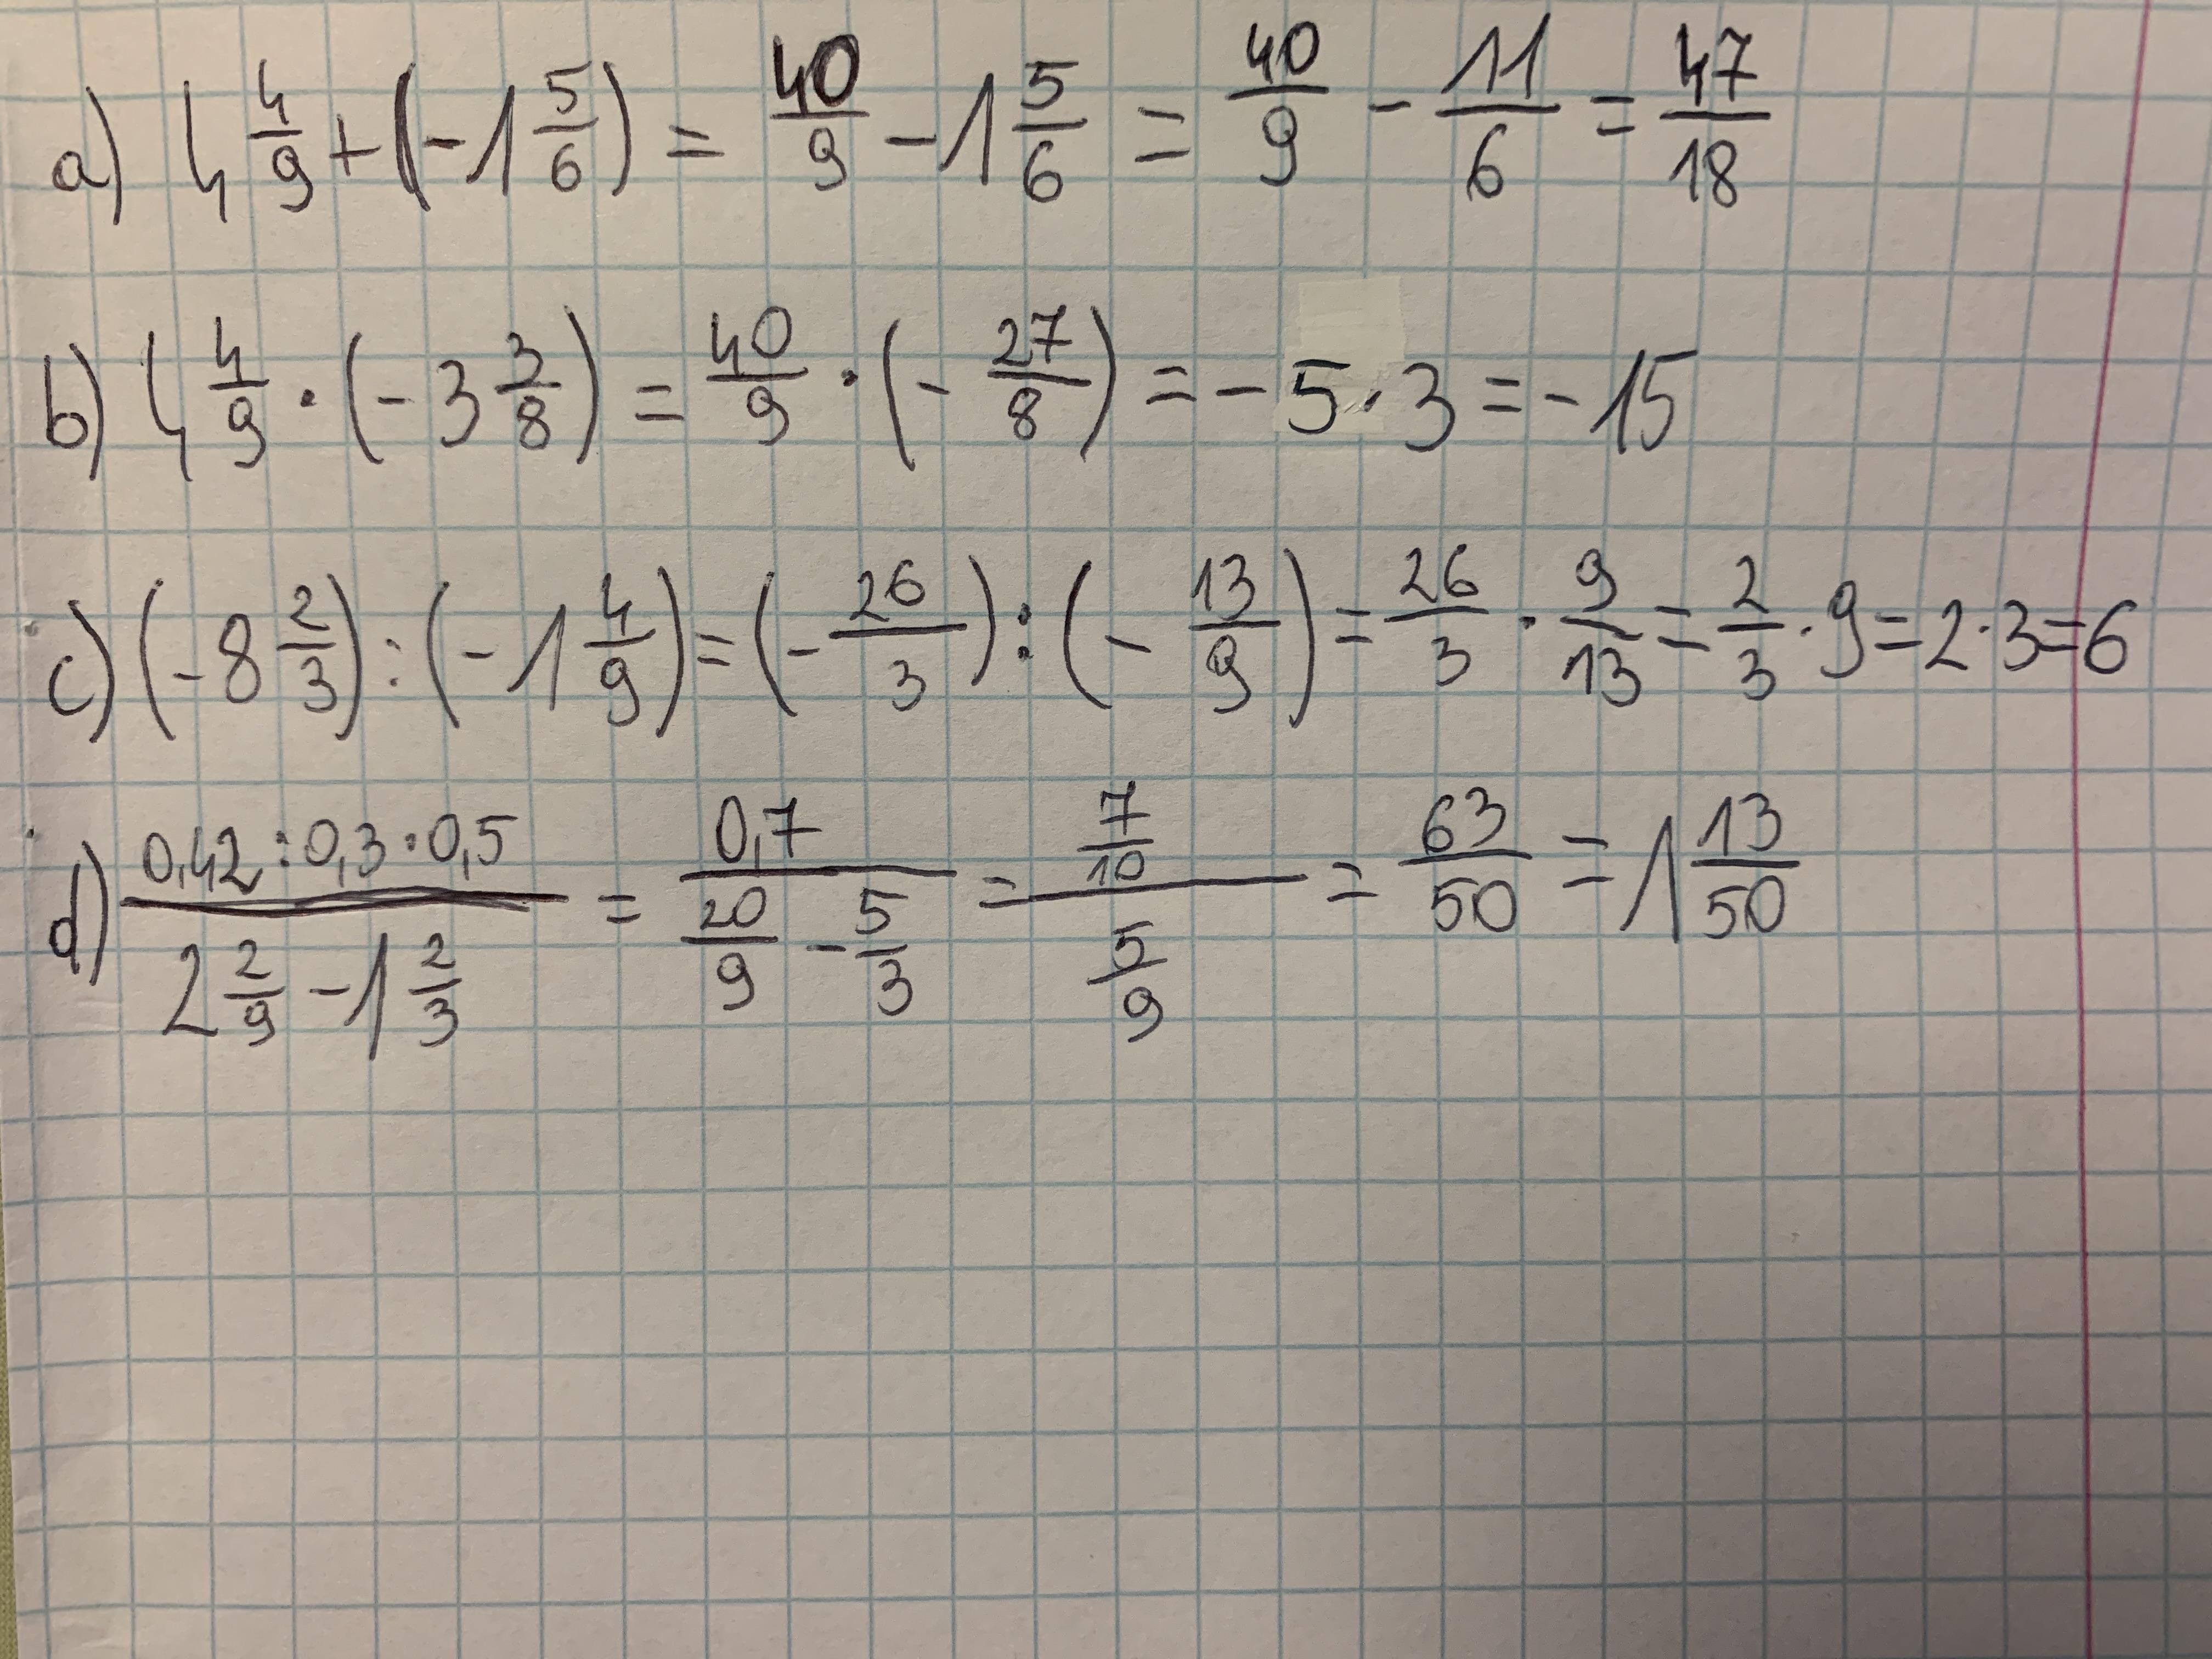 a) 4 4/9 + (-1 5/6) = 40/9 - 1 5/6 = 40/9 - 11/6 = 47/18
b) 4 4/9 · (-3 3/8) = 40/9 · (- 27/8) = - 5 · 3 = - 15
c) (-8 2/3) : (-1 4/9) = (- 26/3) : (- 13/9) = 26/3 · 9/13 = 2/3 · 9 = 2 · 3 = 6
d) (0,42 : 0,3 · 0,5)/(2 2/9 - 1 2/3) = 0,7/(20/9 - 5/3) = (7/10)/(5/9) = 63/50 = 1 13/50